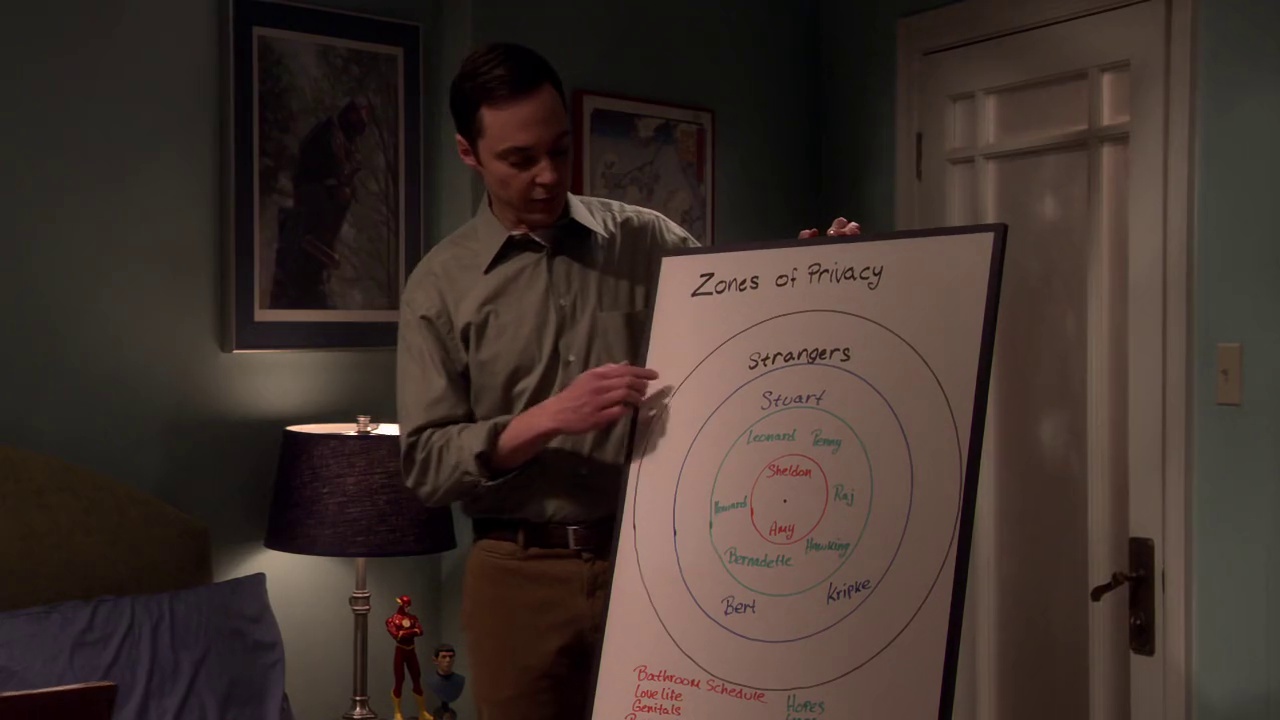 Zones of Privacy
Strangers
Stuart
Leonard Penny
Sheldon
Howard
Raj
Amy
Hawking
Bernadette
Kripke
Bert
Bathroom Schedule
Love life
Genitals
Hopes